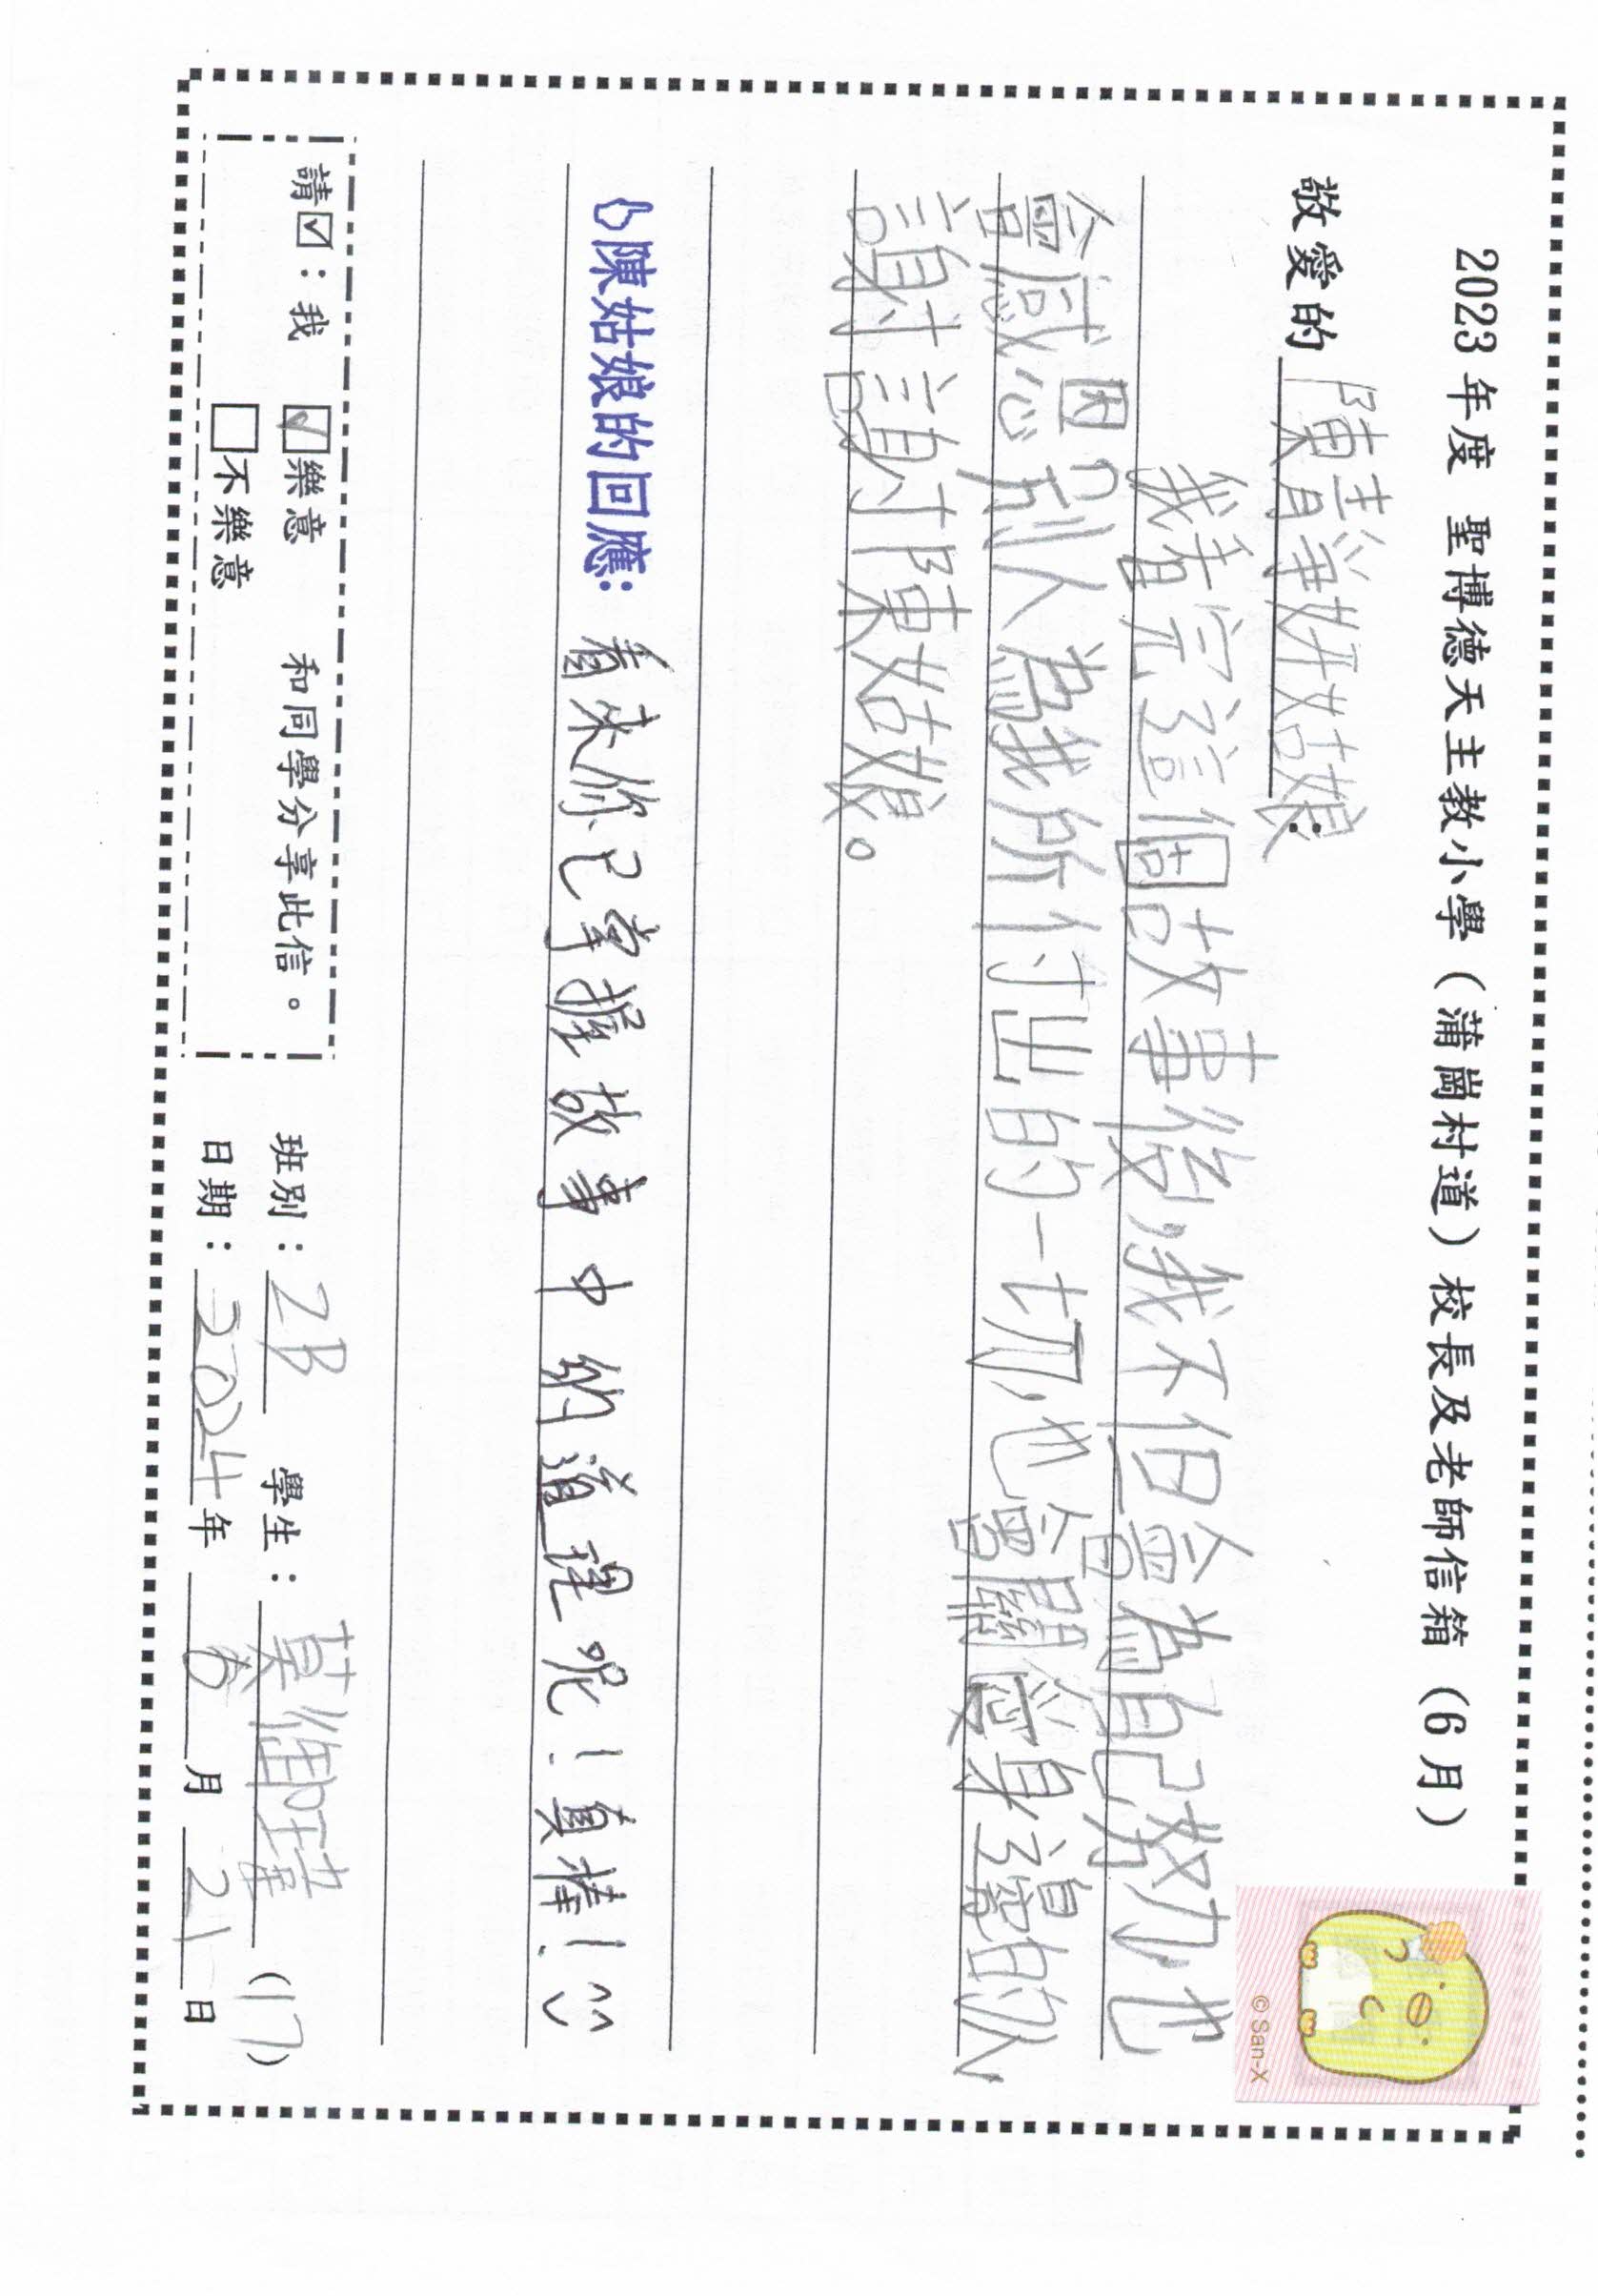 2023年度 聖博德天主教小學（蒲崗村道）校長及老師信箱（6月）
敬愛的 陳靜妍姑娘：
我看完這個故事後，我不但會為自己努力，也
會感恩別人為我所付出的一切，也會關愛身邊的人
謝謝陳姑娘。
陳姑娘的回應：看來你已掌握故事中的道理呢！真棒！
請☑：我 ☑樂意 和同學分享此信。
□不樂意
班別：2B 學生：(17)
日期：2024年6月21日
© San-X